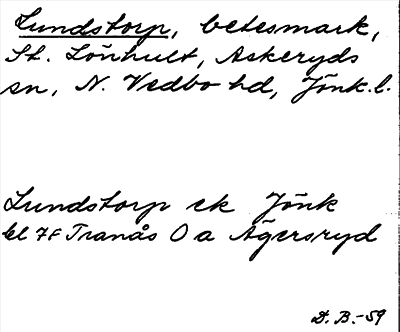 Lundstorp, betesmark,
St. Lönhult, Askeryds
sn, N. Vedbo hd, Jönk.l.
Lundstorp ek Jönk
bl 7f Tranås O a Ägersryd
D.B.-59